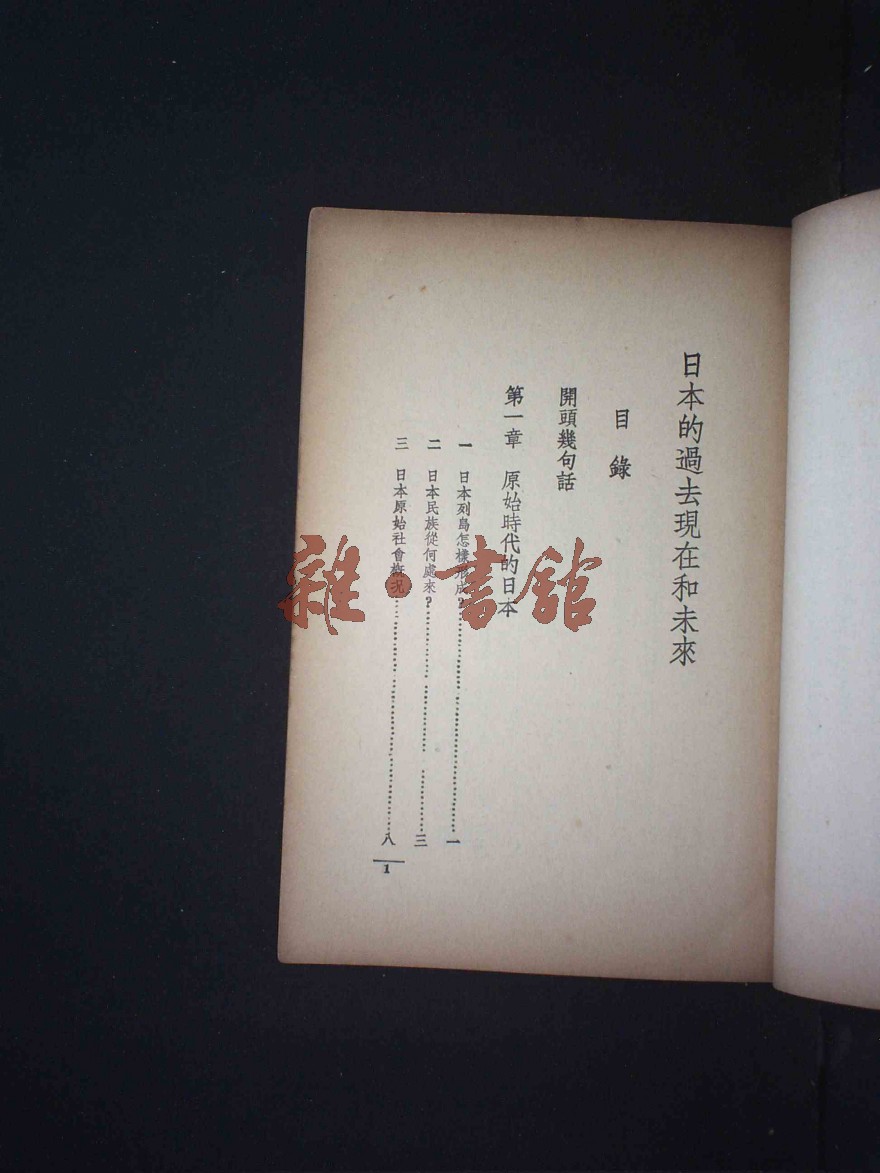 日本的過去現在和未來
目錄
開頭幾句話
第一章 原始時代的日本
一 日本列島怎樣形成?……一
二 日本民族從何處來?……三
三 日本原始社會概況……八
1
雜·書館